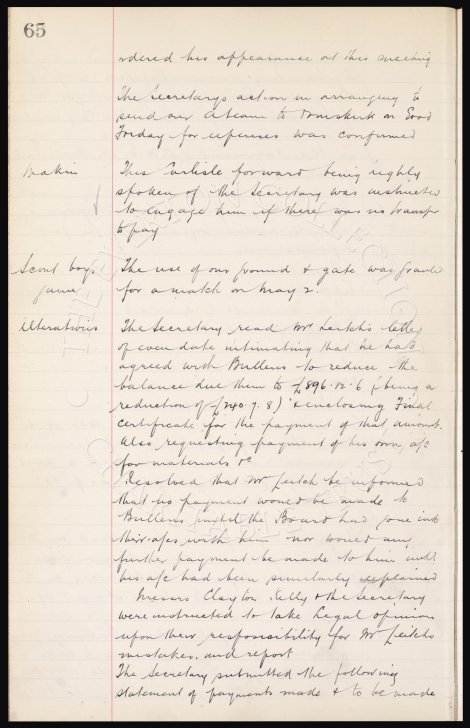 65
ordered his appearance at this meeting
The Secretarys action in arranging to
send our A team to Ormskirk on Good
Friday for expenses was confirmed
Makin This Carlisle forward being highly
spoken of the Secretary was instructed
to engage him if there was no transfer
to pay
Scout boys The use of our ground & gate was granted
game for a match on May 2.
Alterations The Secretary read Mr Leitch's letter
of even date intimating that he had
agreed with Bullens to reduce the
balance due them to £896.12.6 (being a
reduction of £240.7.8) & enclosing Final
certificate for the payment of that amount.
Also requesting payment of his own a/c
for materials &c
Resolved that Mr Leitch be informed
that no payment would be made to
Bullens until the Board had gone into
their a/cs with him nor would any
further payment be made to him until
his a/c had been similarly explained
Messrs Clayton, Kelly & the Secretary
were instructed to take Legal opinion
upon their responsibility for Mr Leitchs
mistakes, and report
The Secretary submitted the following
statement of payments made & to be made
THE EVERTON COLLECTION